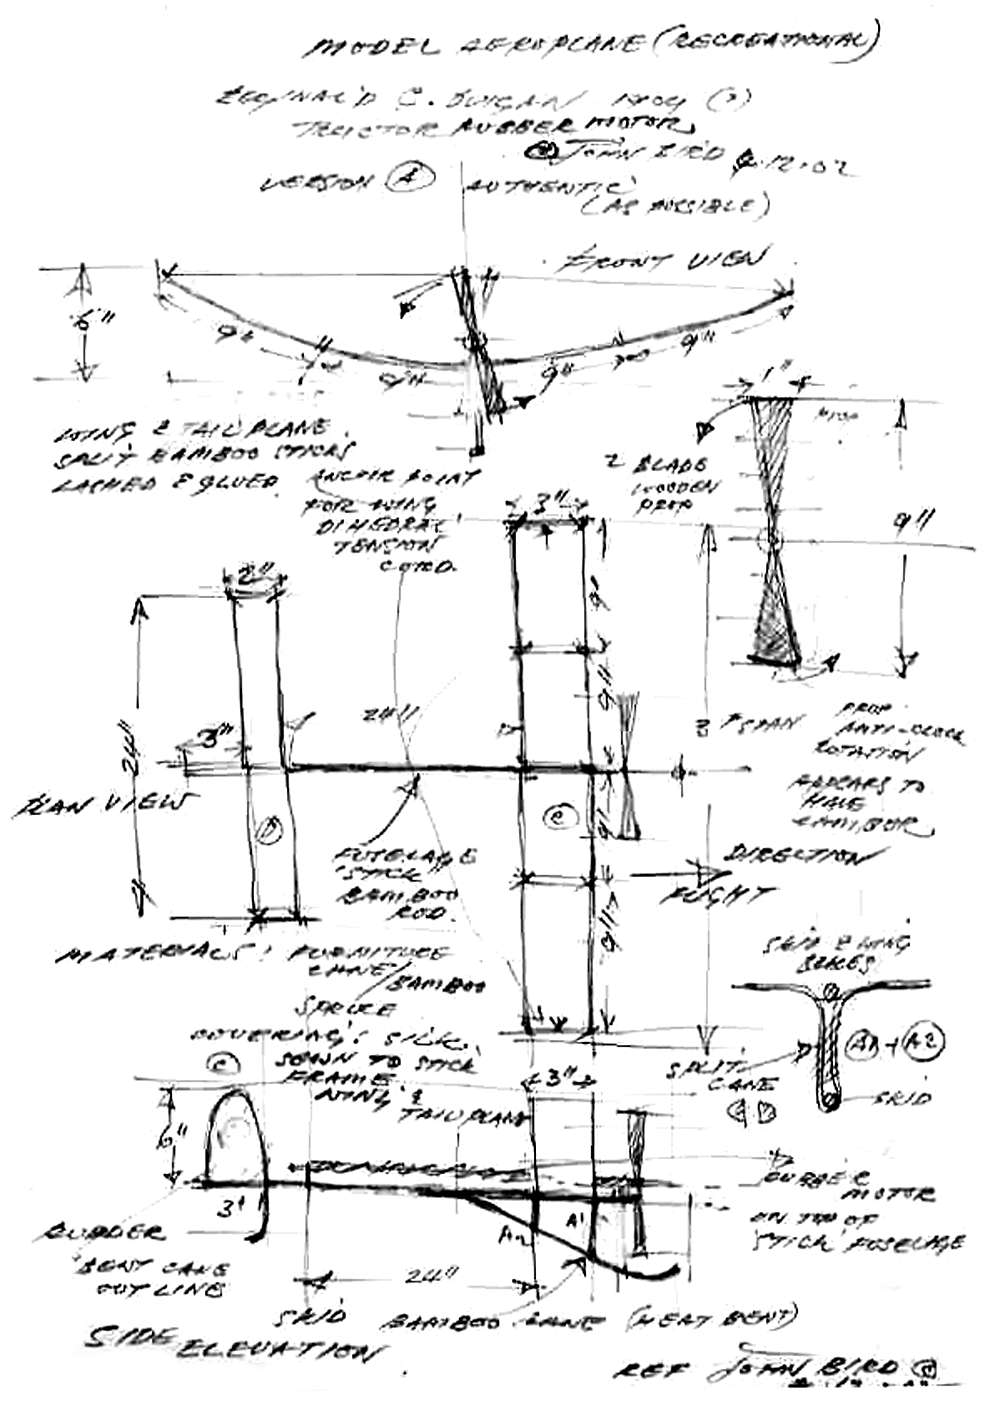 MODEL AEROPLANE (RECREATIONAL)
REGINALD C. DUIGAN 1909 (?)
TRACTOR RUBBER MOTOR
© JOHN BIRD 12.02
VERSION A AUTHENTIC
(AS POSSIBLE)
FRONT VIEW
6"
9"
9"
9"
9"
WING & TAILPLANE
SPLIT BAMBOO STICKS
LASHED & GLUED
ANCHOR POINT
FOR WING
DIHEDRAL
TENSION
CORD.
1"
PROP
2 BLADE
WOODEN
PROP
9"
3"
2"
9"
9"
9"
9"
24"
3"
24"
SPAN
PROP
ANTI-CLOCK
ROTATION
APPEARS TO
HAVE
CAMBOR
PLAN VIEW
D
C
FUSELAGE
"STICK"
BAMBOO
ROD.
DIRECTION
FLIGHT
MATERIALS: FURNITURE
CANE/BAMBOO
SPRUCE
COVERING: SILK
SEWN TO STICK
FRAME.
WING &
TAILPLANE
SKID & WING
BRACES
A1 + A2
SPLIT
CANE
SKID
C
3"
6"
3"
RUBBER
MOTOR
ON TOP OF
'STICK' FUSELAGE
A2
A1
RUDDER
BENT CANE
OUTLINE
24"
SKID BAMBOO CANE (HEAT BENT)
SIDE ELEVATION
REF JOHN BIRD ©